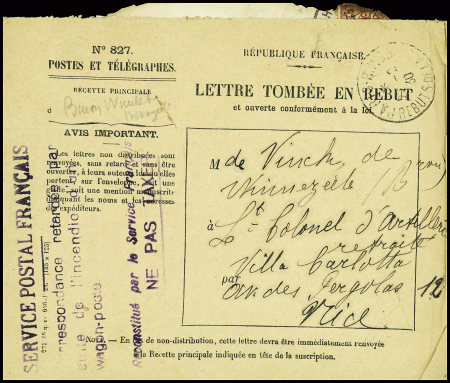 N° 827.
POSTES ET TÉLÉGRAPHES
RECETTE PRINCIPALE
d
AVIS IMPORTANT.
Les lettres non distribuées sont
renvoyées, sans retard
ouverte, à leurs auteurs
portent, sur l'enveloppe
soit une mention manuscrite
indiquant les noms et les adresses
expéditeurs.
RÉPUBLIQUE FRANÇAISE.
LETTRE TOMBÉE EN REBUT
et ouverte conformément à la loi.
PARIS REBUTS
M de Vinck, de
Winnezeele (Bron)
à Lt Colonel d'Artillerie
retraité
Villa Carlotta
par
des 12
Nice
Nota. — En cas de non-distribution, cette lettre devra être immédiatement renvoyée
à la Recette principale indiquée en tête de la suscription.
SERVICE POSTAL FRANÇAIS
Correspondance retardée par
suite de l'incendie d'un
wagon-poste
Reconstitué par le Service Français
NE PAS TAXER